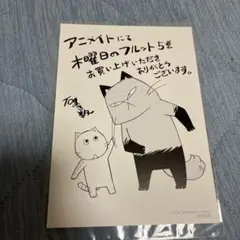 アニメイトにて
木曜日のフルット5を
お買い上げいただき
ありがとう
ございます。